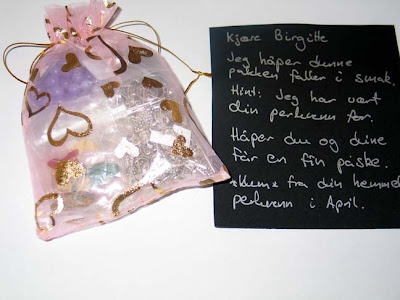 Kjære Birgitte
Jeg håper denne
pakken faller i smak.
Hint: Jeg har vært
din perlevenn før.
Håper du og dine
får en fin påske.
*klem* fra din hemmel
perlevenn i April.